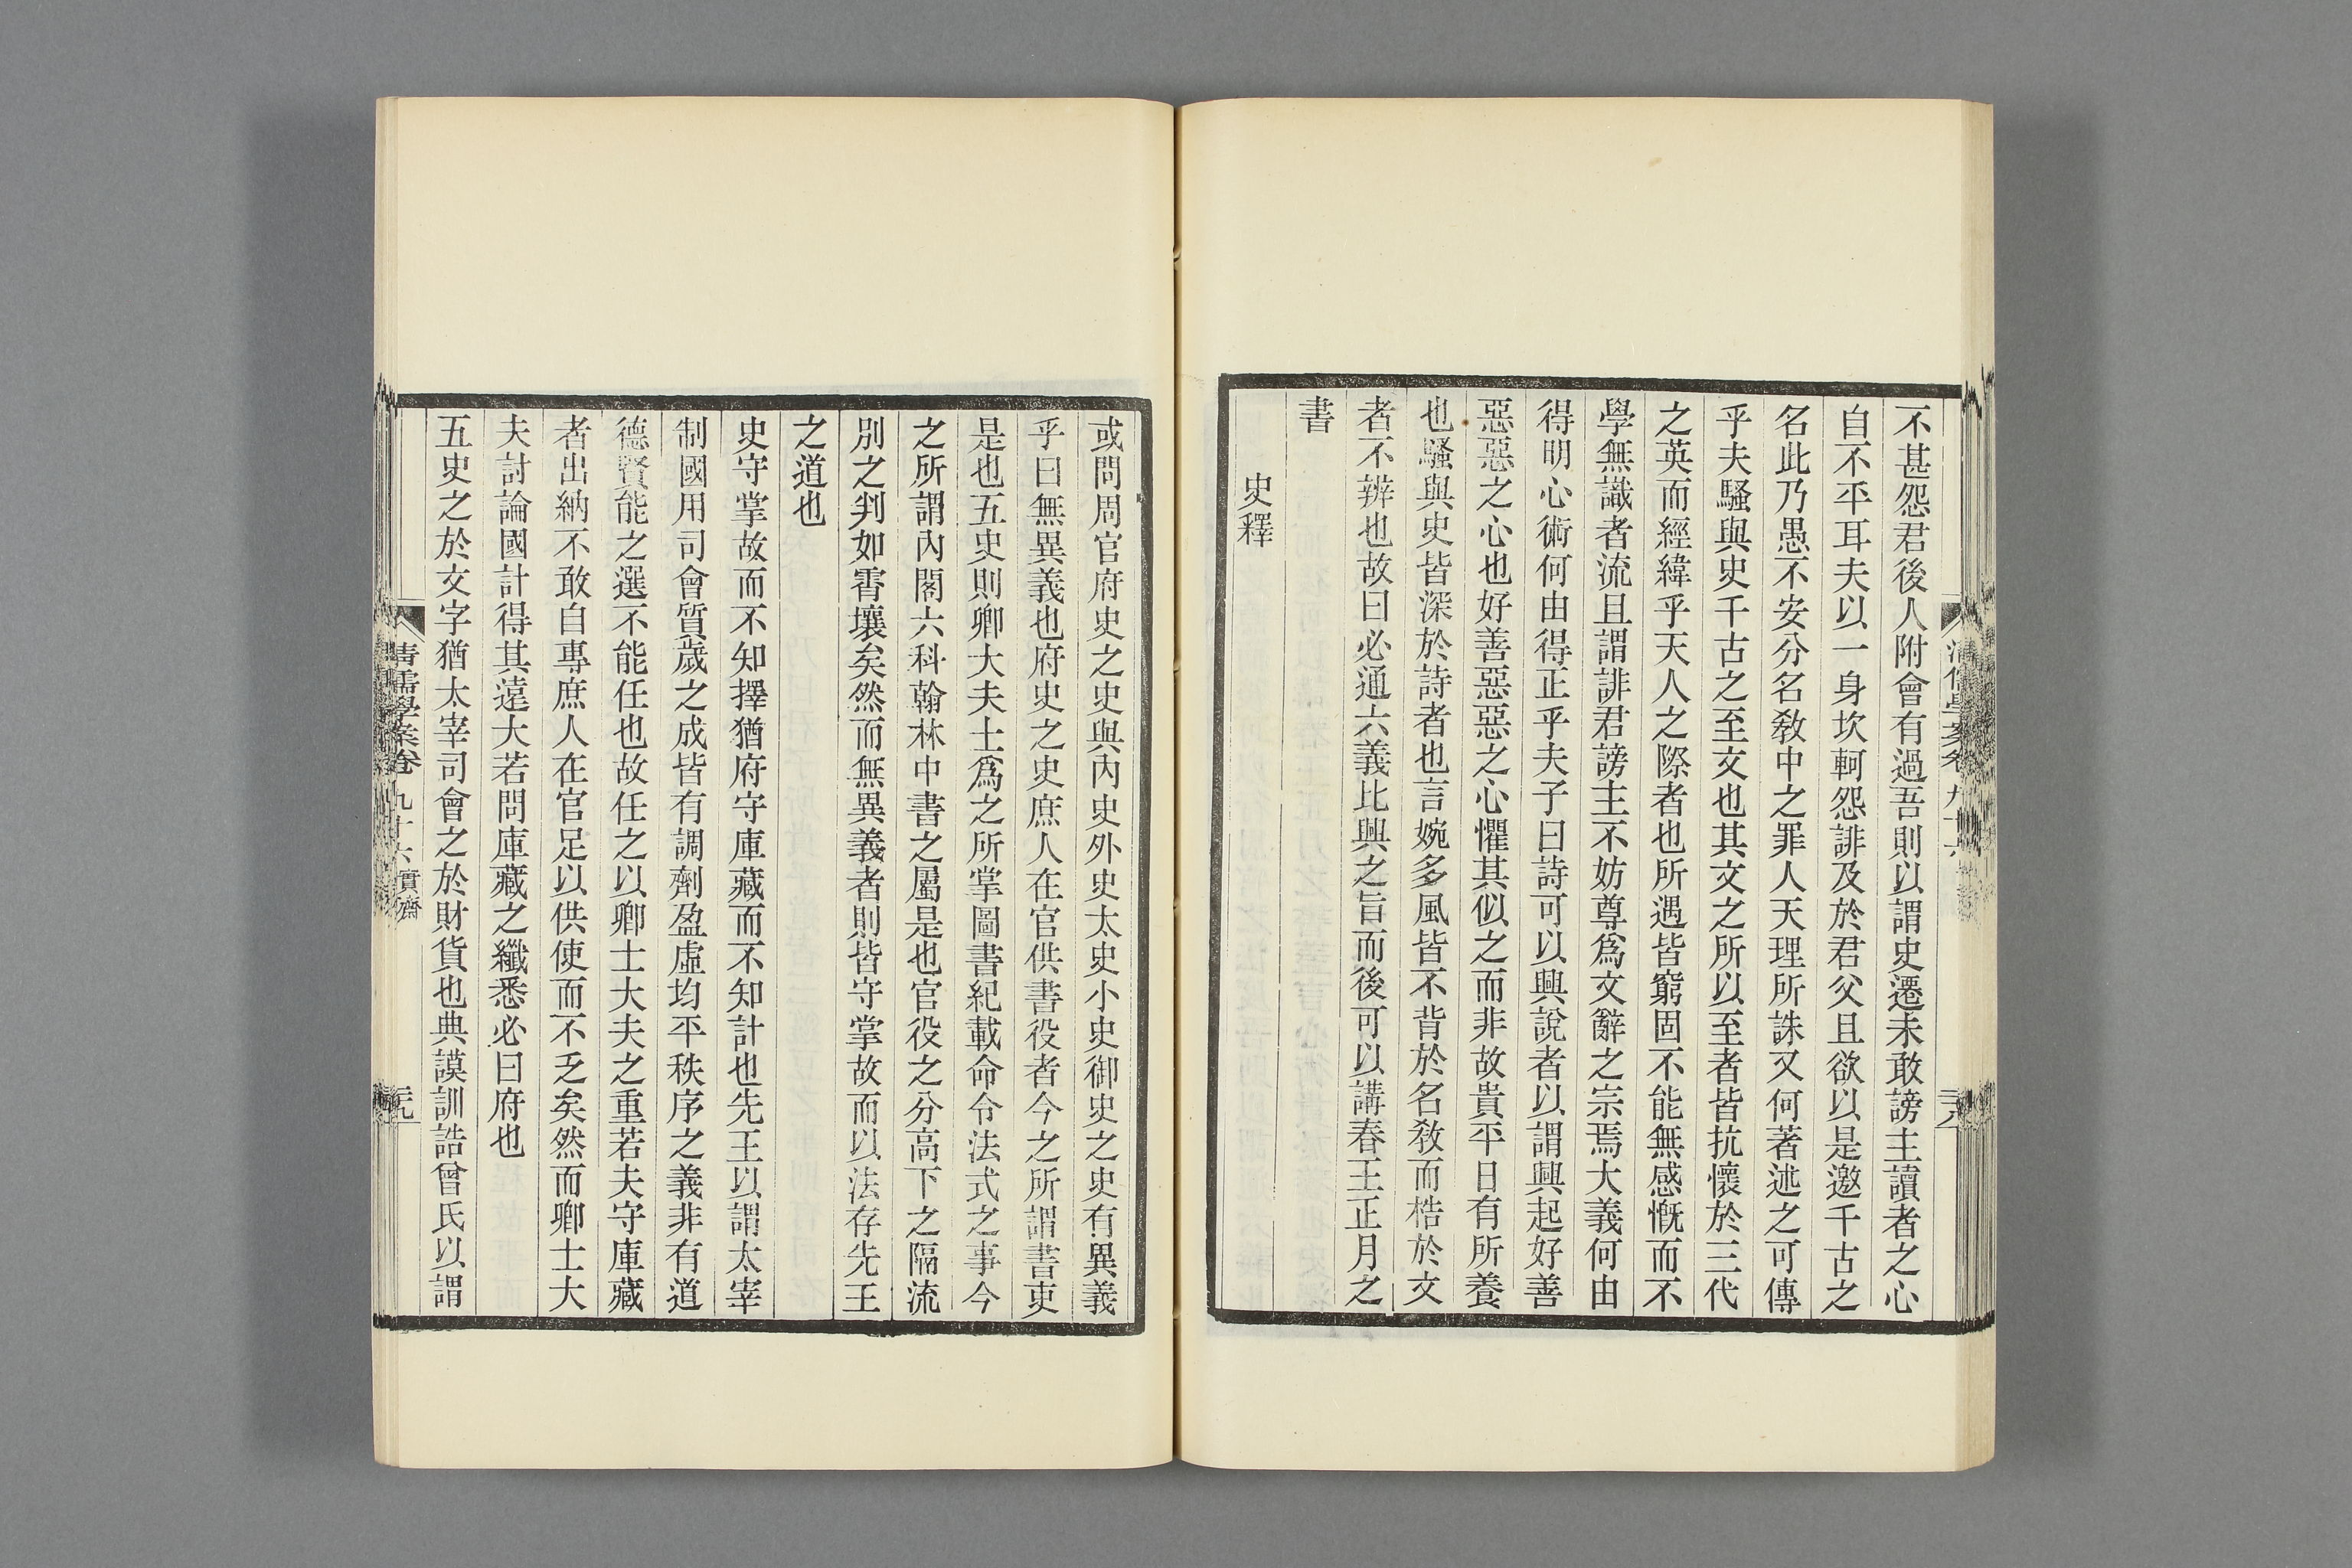 不甚怨君後人附會有過吾則以謂史遷未敢謗主讀者之心
自不平耳夫以一身坎軻怨誹及於君父且欲以是邀千古之
名此乃愚不安分名敎中之罪人天理所誅又何著述之可傳
乎夫騷與史千古之至文也其文之所以至者皆抗懷於三代
之英而經緯乎天人之際者也所遇皆窮固不能無感慨而不
學無識者流且謂誹君謗主不妨尊爲文辭之宗焉大義何由
得明心術何由得正乎夫子曰詩可以興說者以謂興起好善
惡惡之心也好善惡惡之心懼其似之而非故貴平日有所養
也騷與史皆深於詩者也言婉多風皆不背於名敎而梏於文
者不辨也故曰必通六義比興之旨而後可以講春王正月之
書
史釋
清儒學案卷九十六
三八
或問周官府史之史與內史外史太史小史御史之史有異義
乎曰無異義也府史之史庶人在官供書役者今之所謂書吏
是也五史則卿大夫士爲之所掌圖書紀載命令法式之事今
之所謂內閣六科翰林中書之屬是也官役之分高下之隔流
別之判如霄壤矣然而無異義者則皆守掌故而以法存先王
之道也
史守掌故而不知擇猶府守庫藏而不知計也先王以謂太宰
制國用司會質歲之成皆有調劑盈虛均平秩序之義非有道
德賢能之選不能任也故任之以卿士大夫之重若夫守庫藏
者出納不敢自專庶人在官足以供使而不乏矣然而卿士大
夫討論國計得其遠大若問庫藏之纖悉必曰府也
五史之於文字猶太宰司會之於財貨也典謨訓誥曾氏以謂
清儒學案卷九十六實齋
三九